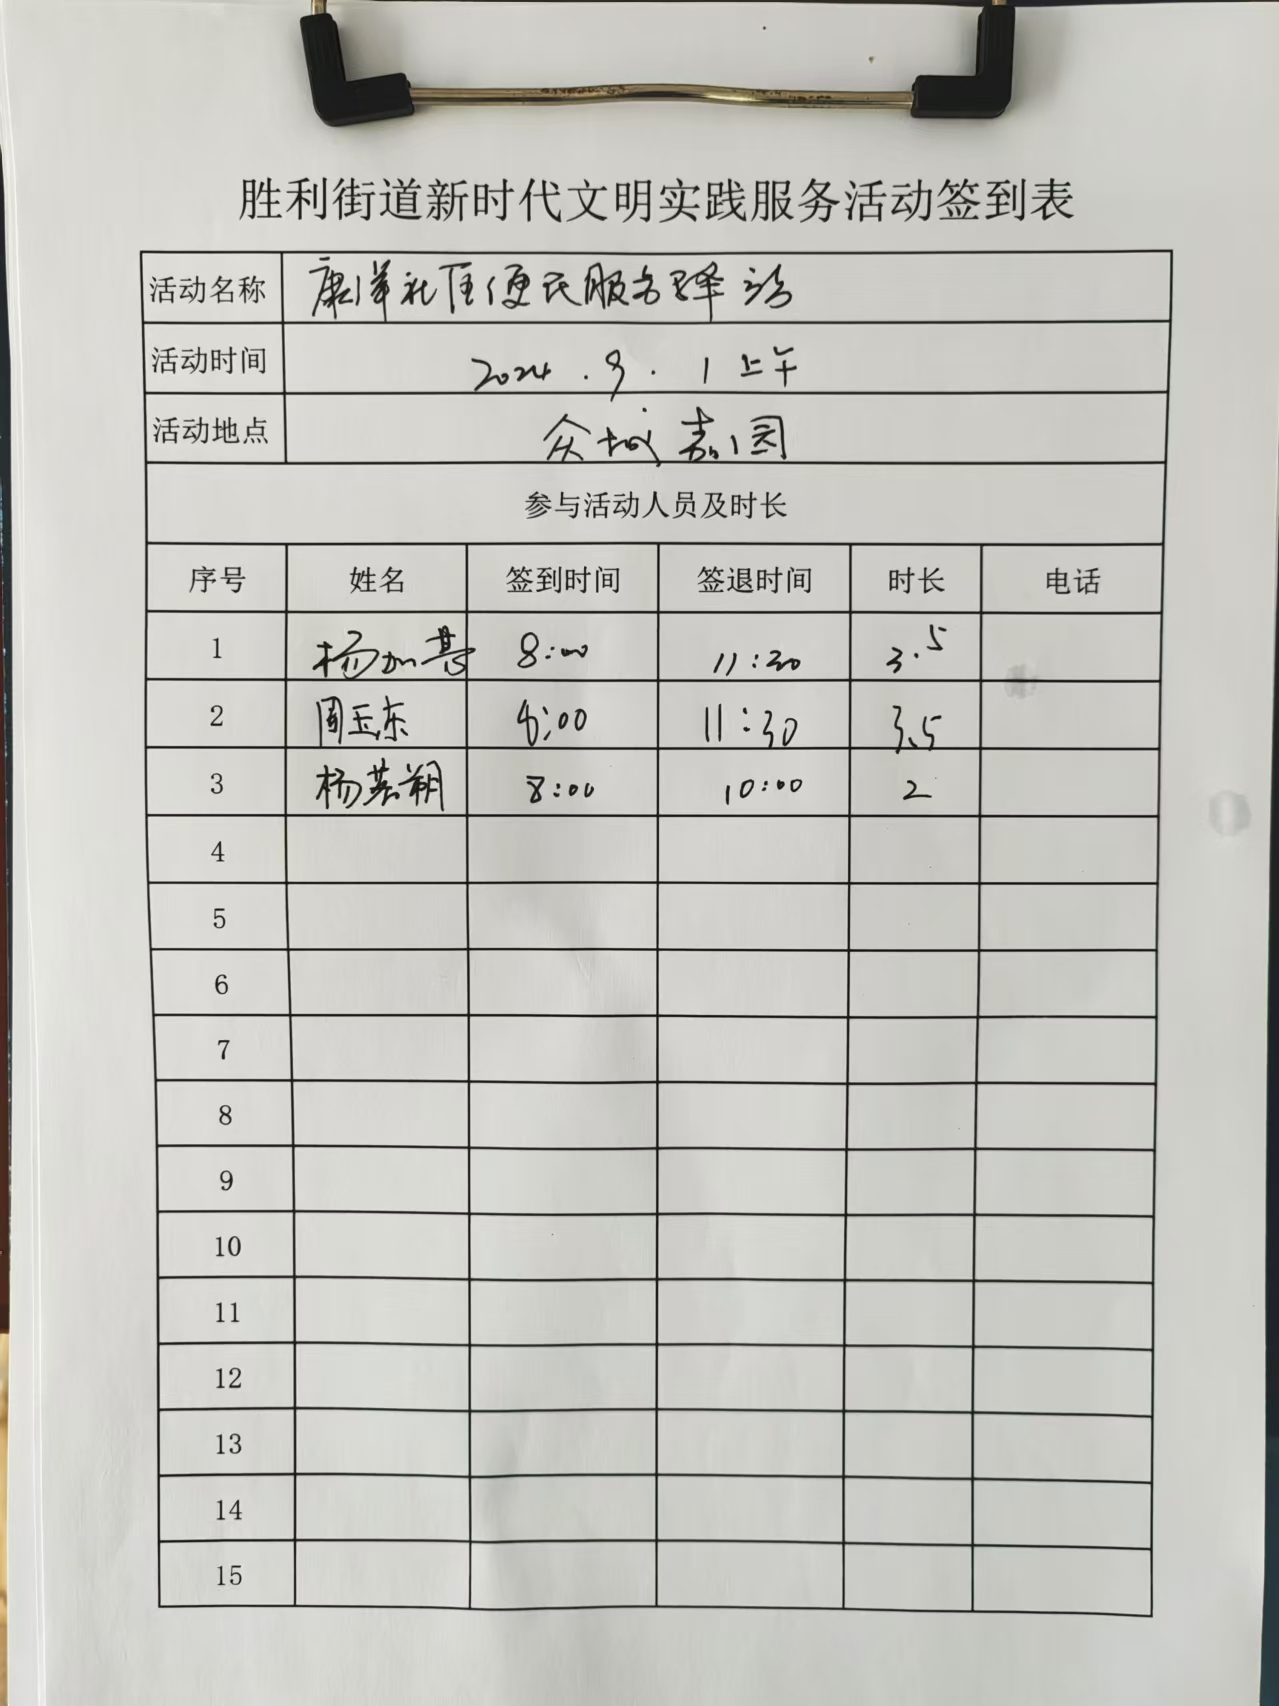 胜利街道新时代文明实践服务活动签到表
活动名称 康洋社区便民服务驿站
活动时间 2024.9.1上午
活动地点 众城嘉园
参与活动人员及时长
序号 姓名 签到时间 签退时间 时长 电话
1 杨加基 8:00 11:30 3.5
2 周玉东 8:00 11:30 3.5
3 杨慕朔 8:00 10:00 2
4
5
6
7
8
9
10
11
12
13
14
15